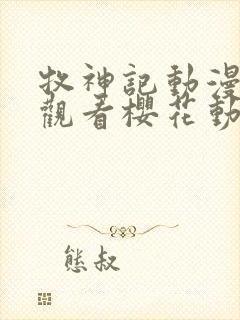 牧神記動漫
觀看櫻花動
熊叔